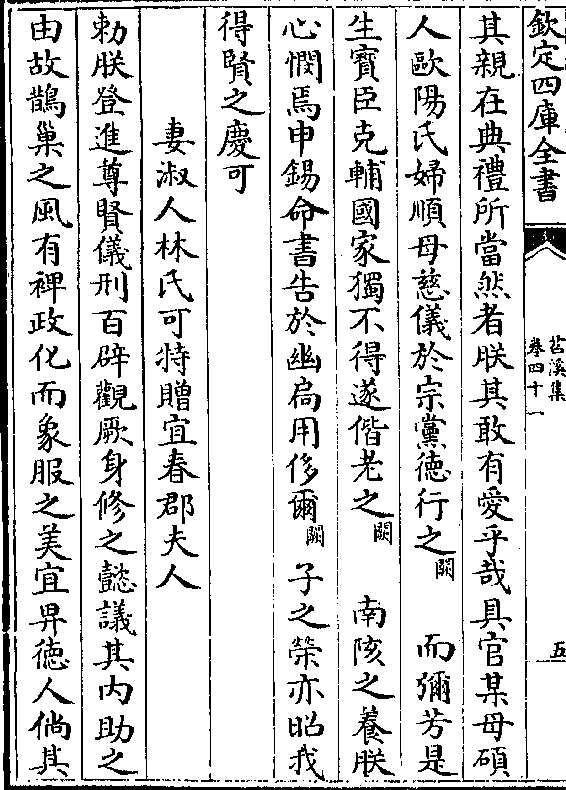 欽定四庫全書
苕溪集
卷四十一
五
其親在典禮所當然者朕其敢有愛乎哉具官某母碩
人歐陽氏婦順母慈儀於宗黨徳行之闕而彌芳是
生寳臣克輔國家獨不得遂偕老之闕南陔之養朕
心憫焉申錫命書告於幽扃用侈爾闕子之榮亦昭我
得賢之慶可
妻淑人林氏可特贈宜春郡夫人
勅朕登進尊賢儀刑百辟觀厥身修之懿議其内助之
由故鵲巢之風有禆政化而象服之美宜畀徳人倘其